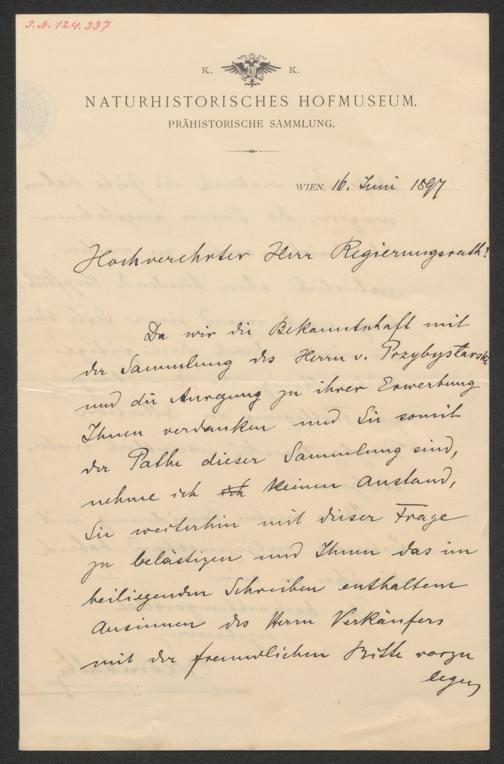 J.N. 124.337
K. K.
NATURHISTORISCHES HOFMUSEUM.
PRÄHISTORISCHE SAMMLUNG.
WIEN, 16. Juni 1897
Hochverehrter Herr Regierungsrath!
Da wir die Bekanntschaft mit
der Sammlung des Herrn v. Przybysławski
und die Anregung zu ihrer Erwerbung
Ihnen verdanken und Sie somit
der Pathe dieser Sammlung sind,
nehme ich keinen Anstand,
Sie weiterhin mit dieser Frage
zu belästigen und Ihnen das im
beiliegenden Schreiben enthaltene
Ansinnen des Herrn Verkäufers
mit der freundlichen Bitte vorzu
legen,